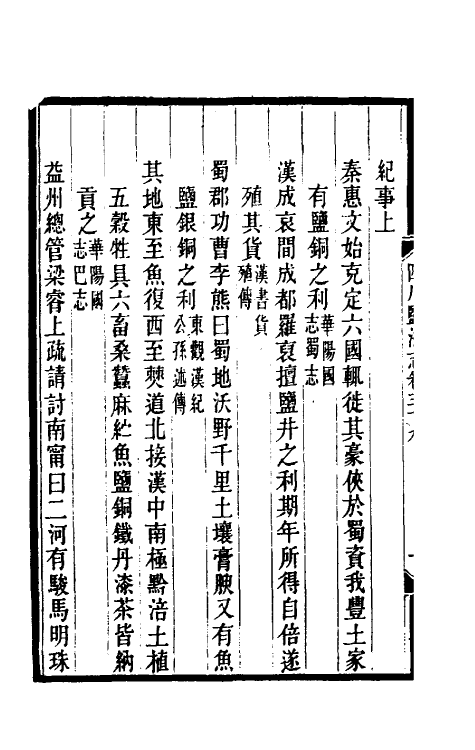 紀事上
秦惠文始克定六國輒徙其豪俠於蜀資我豐土家
有鹽銅之利華陽國志蜀志
漢成哀間成都羅裒擅鹽井之利期年所得自倍遂
殖其貨漢書貨殖傳
蜀郡功曹李熊曰蜀地沃野千里土壤膏腴又有魚
鹽銀銅之利東觀漢紀公孫述傳
其地東至魚復西至僰道北接漢中南極黔涪土植
五穀牲具六畜桑蠶麻紵魚鹽銅鐵丹漆茶皆納
貢之華陽國志巴志
益州總管梁睿上疏請討南甯曰二河有駿馬明珠